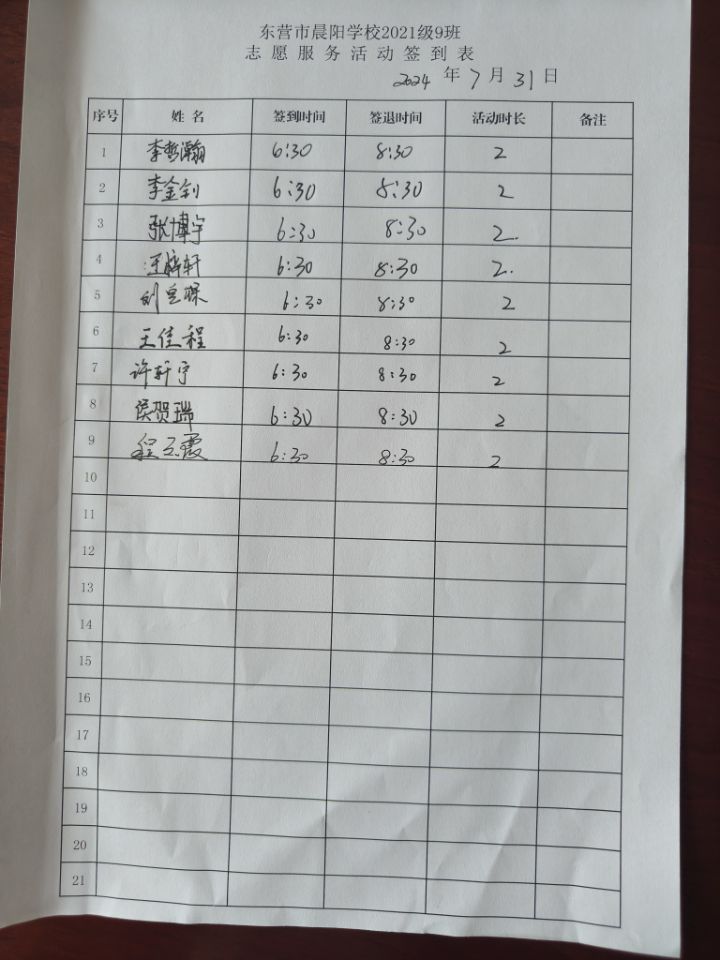 东营市晨阳学校2021级9班
志愿服务活动签到表
2024 年 7 月 31 日
序号 姓名 签到时间 签退时间 活动时长 备注
1 李哲瀚 6:30 8:30 2
2 李金钊 6:30 8:30 2
3 张博宇 6:30 8:30 2
4 王 轩 6:30 8:30 2
5 刘 6:30 8:30 2
6 王佳程 6:30 8:30 2
7 许轩宁 6:30 8:30 2
8 侯贺瑞 6:30 8:30 2
9 程玉霞 6:30 8:30 2
10
11
12
13
14
15
16
17
18
19
20
21